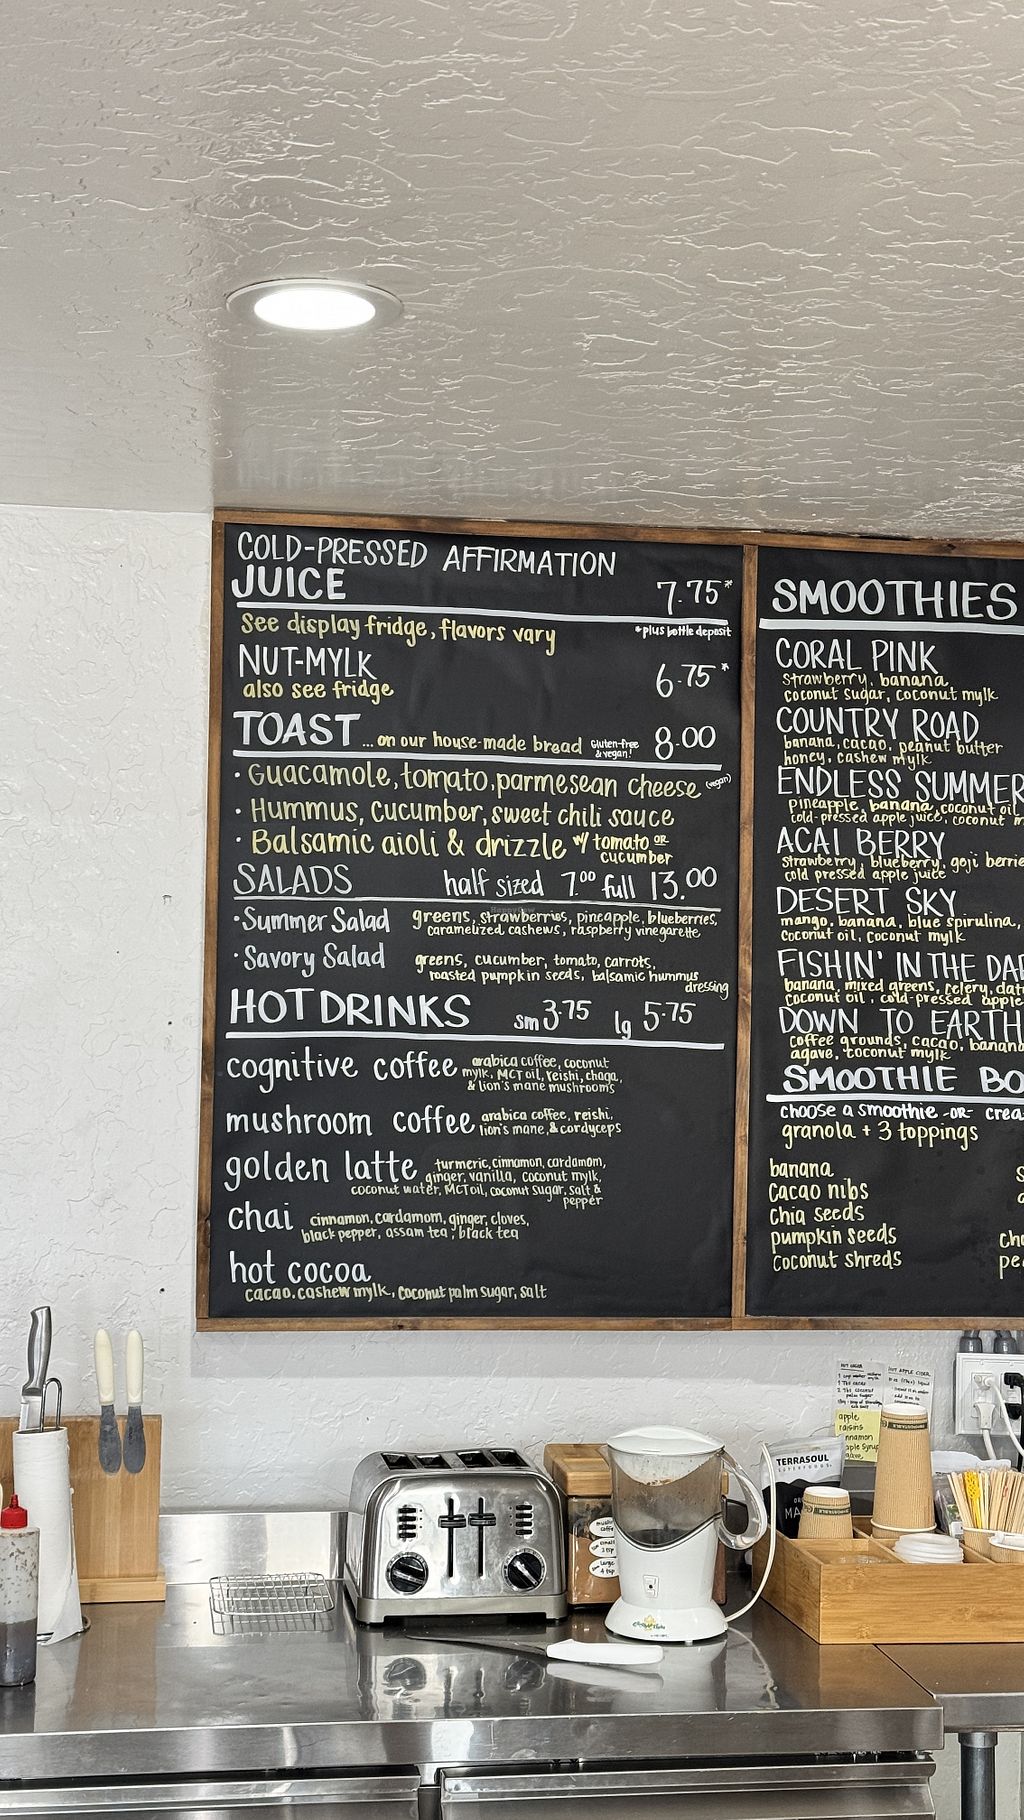 COLD-PRESSED AFFIRMATION
JUICE 7.75*
See display fridge, flavors vary *plus bottle deposit
NUT-MYLK 6.75*
also see fridge
TOAST ...on our house-made bread Gluten-free & vegan! 8.00
• Guacamole, tomato, parmesean cheese (vegan)
• Hummus, cucumber, sweet chili sauce
• Balsamic aioli & drizzle w/ tomato OR
cucumber
SALADS half sized 7.00 full 13.00
• Summer Salad greens, strawberries, pineapple, blueberries,
caramelized cashews, raspberry vinegarette
• Savory Salad greens, cucumber, tomato, carrots,
roasted pumpkin seeds, balsamic hummus
dressing
HOT DRINKS sm 3.75 lg 5.75
cognitive coffee arabica coffee, coconut
mylk, MCT oil, reishi, chaga,
& lion's mane mushrooms
mushroom coffee arabica coffee, reishi,
lion's mane, & cordyceps
golden latte turmeric, cinnamon, cardamom,
ginger, vanilla, coconut mylk,
coconut water, MCT oil, coconut sugar, salt &
pepper
chai cinnamon, cardamom, ginger, cloves,
black pepper, assam tea, black tea
hot cocoa
cacao, cashew mylk, coconut palm sugar, salt
SMOOTHIES
CORAL PINK
strawberry, banana
coconut sugar, coconut mylk
COUNTRY ROAD
banana, cacao, peanut butter
honey, cashew mylk
ENDLESS SUMMER
pineapple, banana, coconut oil
cold-pressed apple juice, coconut m
ACAI BERRY
strawberry, blueberry, goji berrie
cold pressed apple juice
DESERT SKY
mango, banana, blue spirulina,
coconut oil, coconut mylk
FISHIN' IN THE DA
banana, mixed greens, celery, dat
coconut oil, cold-pressed apple
DOWN TO EARTH
coffee grounds, cacao, banana
agave, coconut mylk
SMOOTHIE BO
choose a smoothie -OR- crea
granola + 3 toppings
banana
cacao nibs
chia seeds
pumpkin seeds
coconut shreds
HOT COCOA
HOT APPLE CIDER
apple
raisins
cinnamon
TERRASOUL
SUPERFOODS